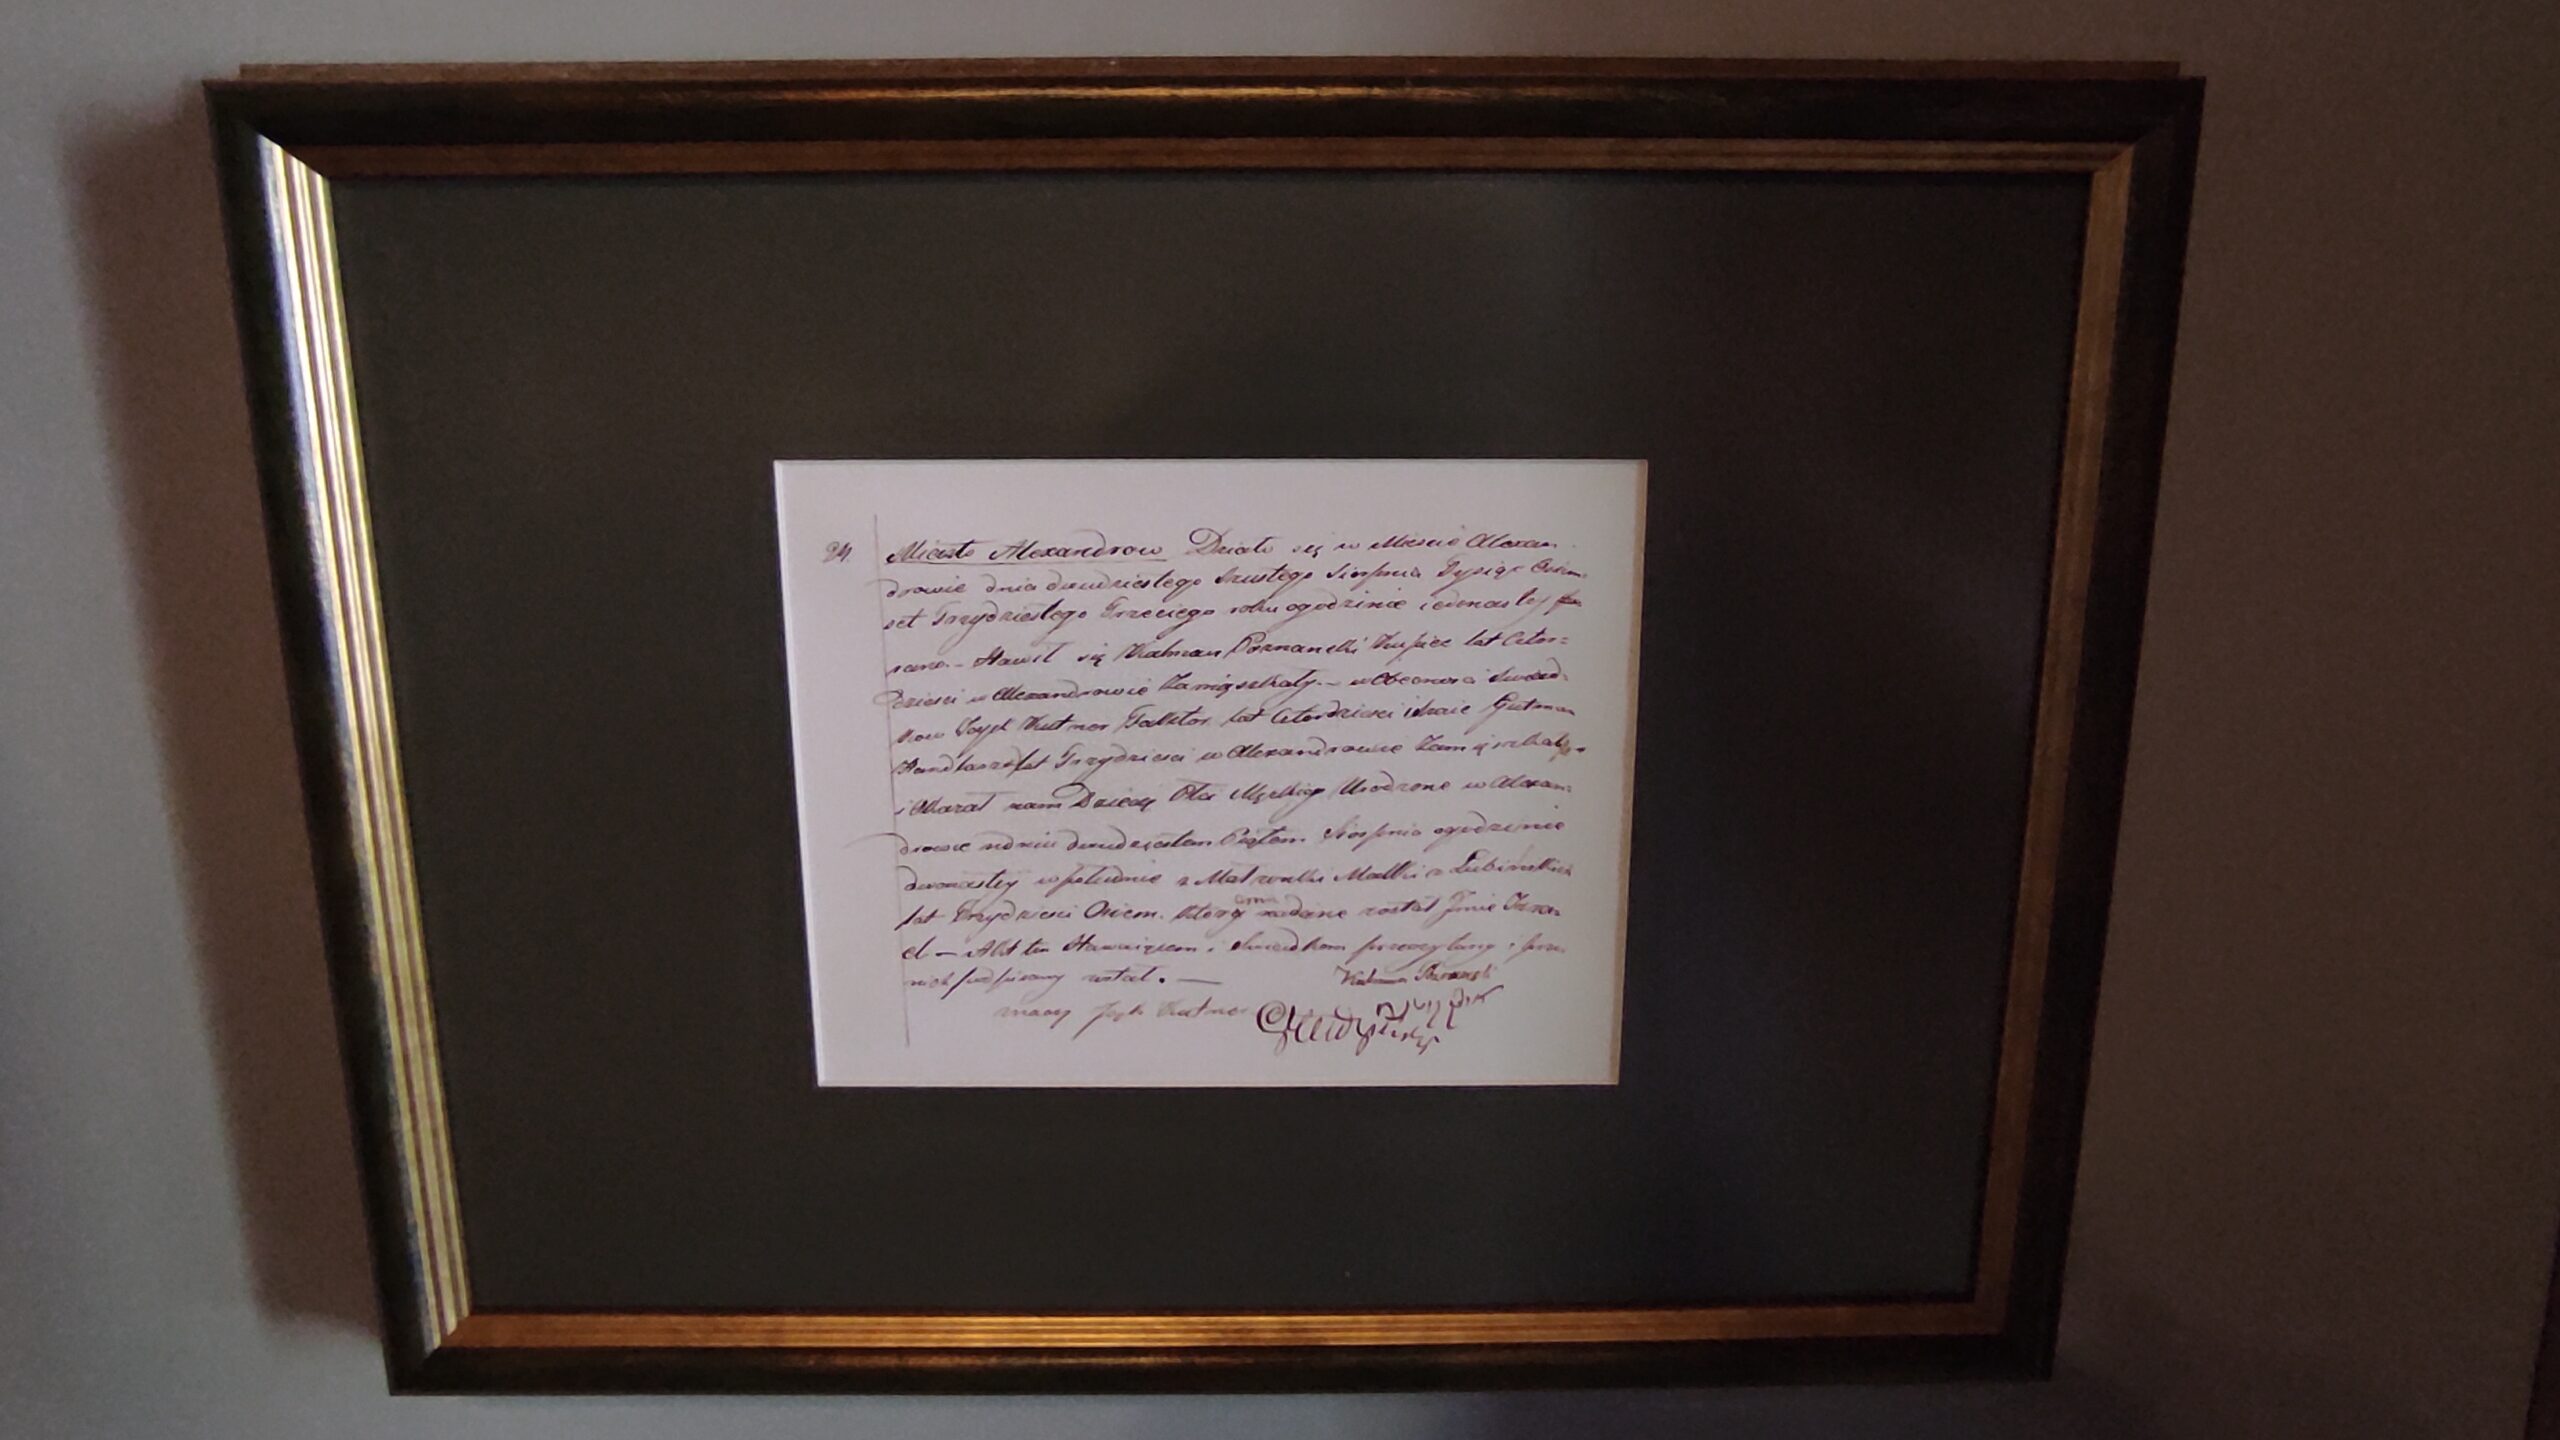 Miasto Alexandrow Działo się w Mieście Alexan
drowie dnia dwudziestego szustego Sierpnia Tysiąc Ośm
set Trzydziestego Trzeciego roku ogodzinie iedenastey
rano. – Stawił się Kalman Poznanski Kupiec lat Czter=
dzieści w Alexandrowie Zamięszkały. – w Obecności Swiad=
kow Joysk Kutner Faktor lat Czterdzieści i Gutman
Handlarz lat Trzydzieści w Alexandrowie Zamięszkały
i Okazał nam Dziecię Płci Męzkiey Urodzone w Alexan=
drowie wdniu dwudziestem Piątem Sierpnia ogodzinie
dwonastey wpołudnie z Małzonki Małki z Lubinskich
lat Trzydzieści Ośiem. Któremu nadane zostało Jmie Izra=
el – Akt ten Stawaiącem i Swiadkom przeczytany i przez
nich podpisany został. –
Kalman Poznanski
Kutner